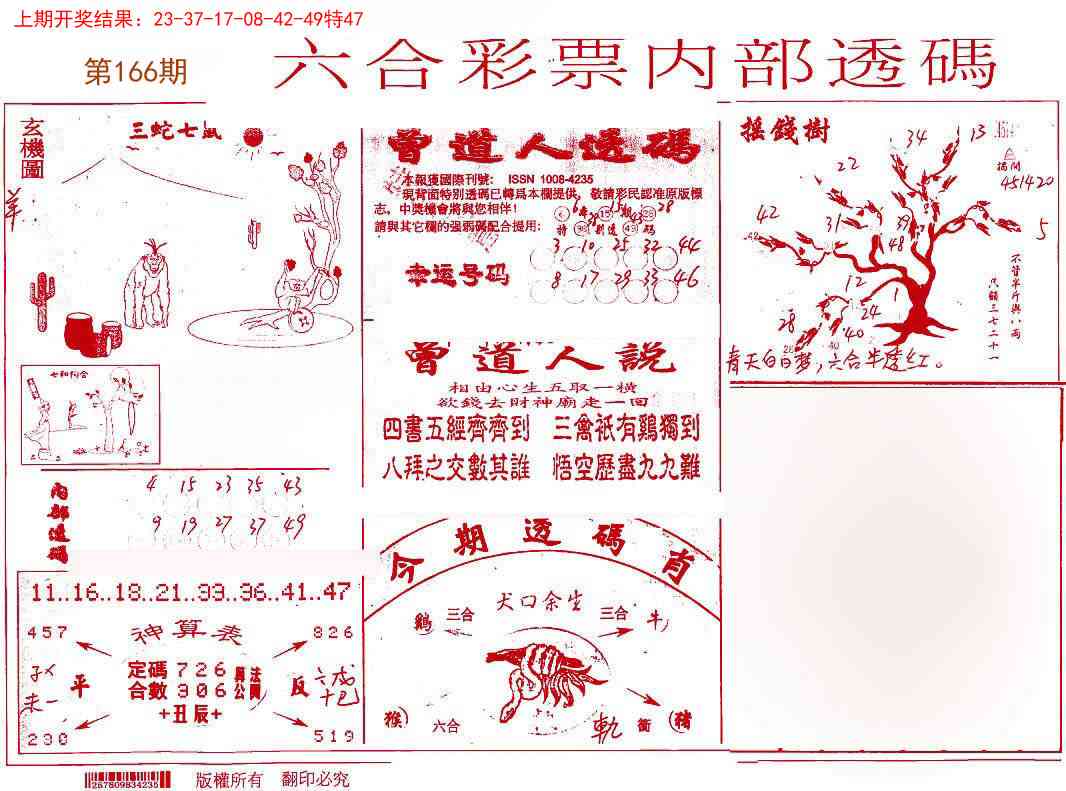 上期开奖结果：23-37-17-08-42-49特47
第166期
六合彩票内部透碼
玄機圖
三蛇七鼠
羊：
七和阿合
内部透碼
4 15 23 35 43
9 19 27 37 49
11..16..18..21..33..36..41..47
神算表
457
826
平
定碼726
合數306
+丑辰+
反
230
519
曾道人透碼
本報獲國際刊號： ISSN 1008-4235
現背面特别透碼已轉爲本欄提供，敬請彩民認准原版標
志，中獎機會將與您相伴！
請與其它欄的强弱碼配合提用：
幸运号码
3 10 25 32 44
8 17 29 33 46
曾道人説
相由心生五取一橫
欲錢去財神廟走一回
四書五經齊齊到 三禽衹有鷄獨到
八拜之交數其誰 悟空歷盡九九難
今期透碼肖
犬口余生
鷄 三合
三合 牛
猴 六合
衝 豬
搖錢樹
34
13
22
451420
42
31
39
48
5
12
1
28
24
40
不管半斤與八兩
青天白日梦，六合半透红。
267809834235
版權所有 翻印必究